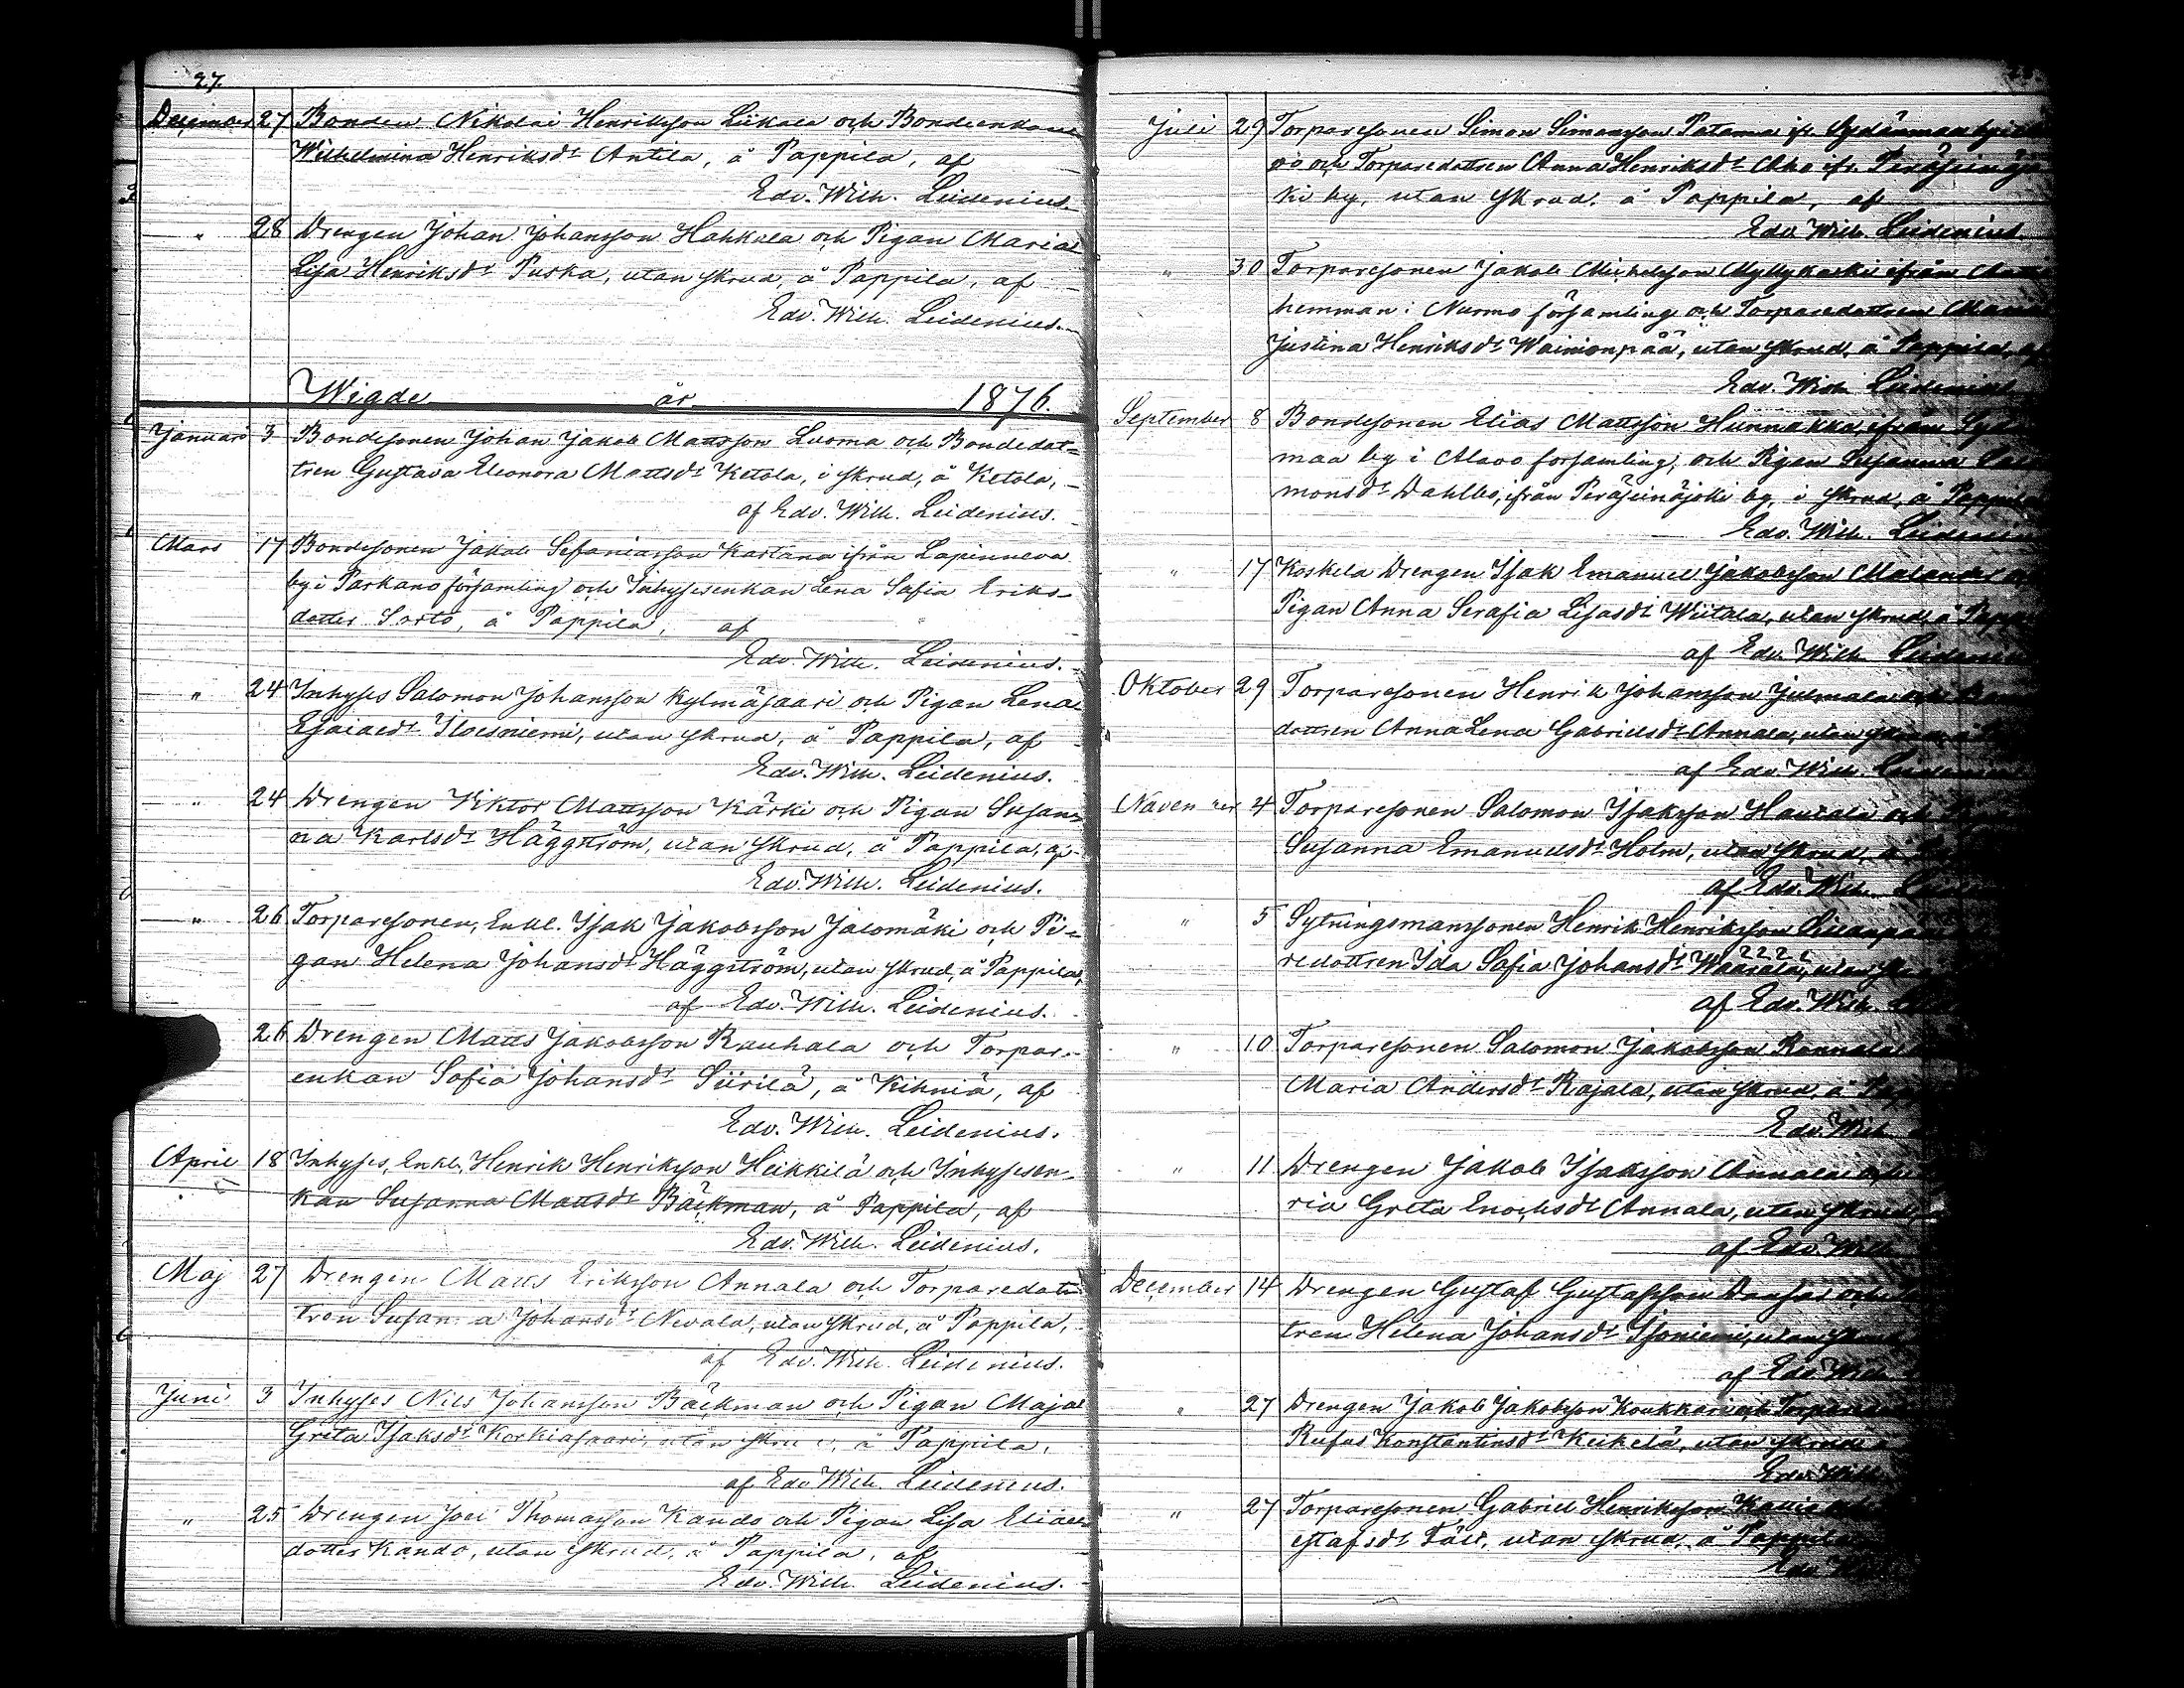 27.
December 27 Bonden Nikolai Henriksson Liikala och Bondeenkan
Wilhelmina Henriksdr Antila, å Pappila, af
Edv. Wilh. Leidenius.
" 28 Drengen Johan Johansson Hahkola och Pigan Maria
Lisa Henriksdr Puska, utan skrud, å Pappila, af
Edv. Wilh. Leidenius.
Wigde år 1876.
Januari 3 Bondesonen Johan Jakob Mattsson Luoma och Bondedot=
tren Gustava Eleonora Mattsdr Ketola, i skrud, å Ketola,
af Edv. Wilh. Leidenius.
Mars 17 Bondesonen Jakob Sefaniasson Kartano ifrån Lapinneva
by i Parkano församling och Inhysesenkan Lena Sofia Eriks-
dotter Sorto, å Pappila, af
Edv. Wilh. Leidenius.
" 24 Inhyses Salomon Johansson Kylmäsaari och Pigan Lena
Esaiaedr Iloesniemi, utan skrud, å Pappila, af
Edv. Wilh. Leidenius.
" 24 Drengen Viktor Mattsson Kärki och Pigan Susan=
na Karlsdr Häggström, utan skrud, å Pappila, af
Edv. Wilh. Leidenius.
" 26 Torparesonen, Enkl. Isak Jakobsson Jalomäki och Pi=
gan Helena Johansdr Häggström, utan skrud, å Pappila,
af Edv. Wilh. Leidenius.
26 Drengen Matts Jakobsson Rauhala och Torpar-
enkan Sofia Johansdr Siirilä, å Kihniä, af
Edv. Wilh. Leidenius.
April 18 Inhyses, Enkl. Henrik Henriksson Heikkilä och Inhysesen-
kan Susanna Mattsdr Bäckman, å Pappila, af
Edv. Wilh. Leidenius.
Maj 27 Drengen Matts Eriksson Annala och Torparedot
tren Susan a Johansdr Nevala, utan skrud, å Pappila,
af Edv. Wilh. Leidenius.
Juni 3 Inhyses Nils Johansson Bäckman och Pigan Maja
Greta Isaksdr Korkiasaari, utan skrud, å Pappila,
af Edv. Wilh. Leidenius.
" 25 Drengen Joel Thomasson Kando och Pigan Lisa Eliae
dotter Kando, utan skrud, å Pappila, af
Edv. Wilh. Leidenius.
Juli 29 Torparesonen Simon Simonsson Patana ifr. Sydänmaa
och Torparedottren Anna Henriksdr Aho ifr. Peräseinäjo
ki by, utan skrud, å Pappila, af
Edv. Wilh. Leidenius.
" 30 Torparesonen Jakob Michelsson Myllykoski ifrån
hemman i Nurmo församling och Torparedottren Maria
Justina Henriksdr Wainionpää, utan skrud, å Pappila, af
Edv. Wilh. Leidenius
September 8 Bondesonen Elias Mattsson Hunnakko, ifrån Syd
maa by i Alavo församling, och Pigan Susanna Salo
monsdr Dahlbo, ifrån Peräseinäjoki by, i skrud, å Pappila
Edv. Wilh. Leidenius
" 17 Koskela Drengen Isak Emanuel Jakobsson Malander
Pigan Anna Serafia Lisasdr Wiitala, utan skrud, å Papp
af Edv. Wilh. Leidenius
Oktober 29 Torparesonen Henrik Johansson Julmala och
dottren Anna Lena Gabrielsdr Annala, utan
af Edv. Wilh. Leidenius
November 4 Torparesonen Salomon Isaksson Hautala och
Susanna Emanuelsdr Holm, utan skrud, å
af Edv. Wilh.
" 5 Sytningsmanssonen Henrik Henriksson
redottren Ida Sofia Johansdr Waarala, utan
af Edv. Wilh.
" 10 Torparesonen Salomon Jakobsson Rannala
Maria Andersdr Rajala, utan skrud, å Papp
Edv. Wilh.
" 11 Drengen Jakob Isaksson Annala och
ria Greta Enochsdr Annala, utan skrud,
af Edv. Wilh
December 14 Drengen Gustaf Gustafsson och
tren Helena Johansdr Isoniemi, utan
af Edv. Wilh
" 27 Drengen Jakob Jakobsson Koukkari och Torpare
Rufas Konstantinsdr Keikelä, utan skrud
Edv. Wilh
" 27 Torparesonen Gabriel Henriksson
stafsdr Fält, utan skrud, å Pappila
Edv.